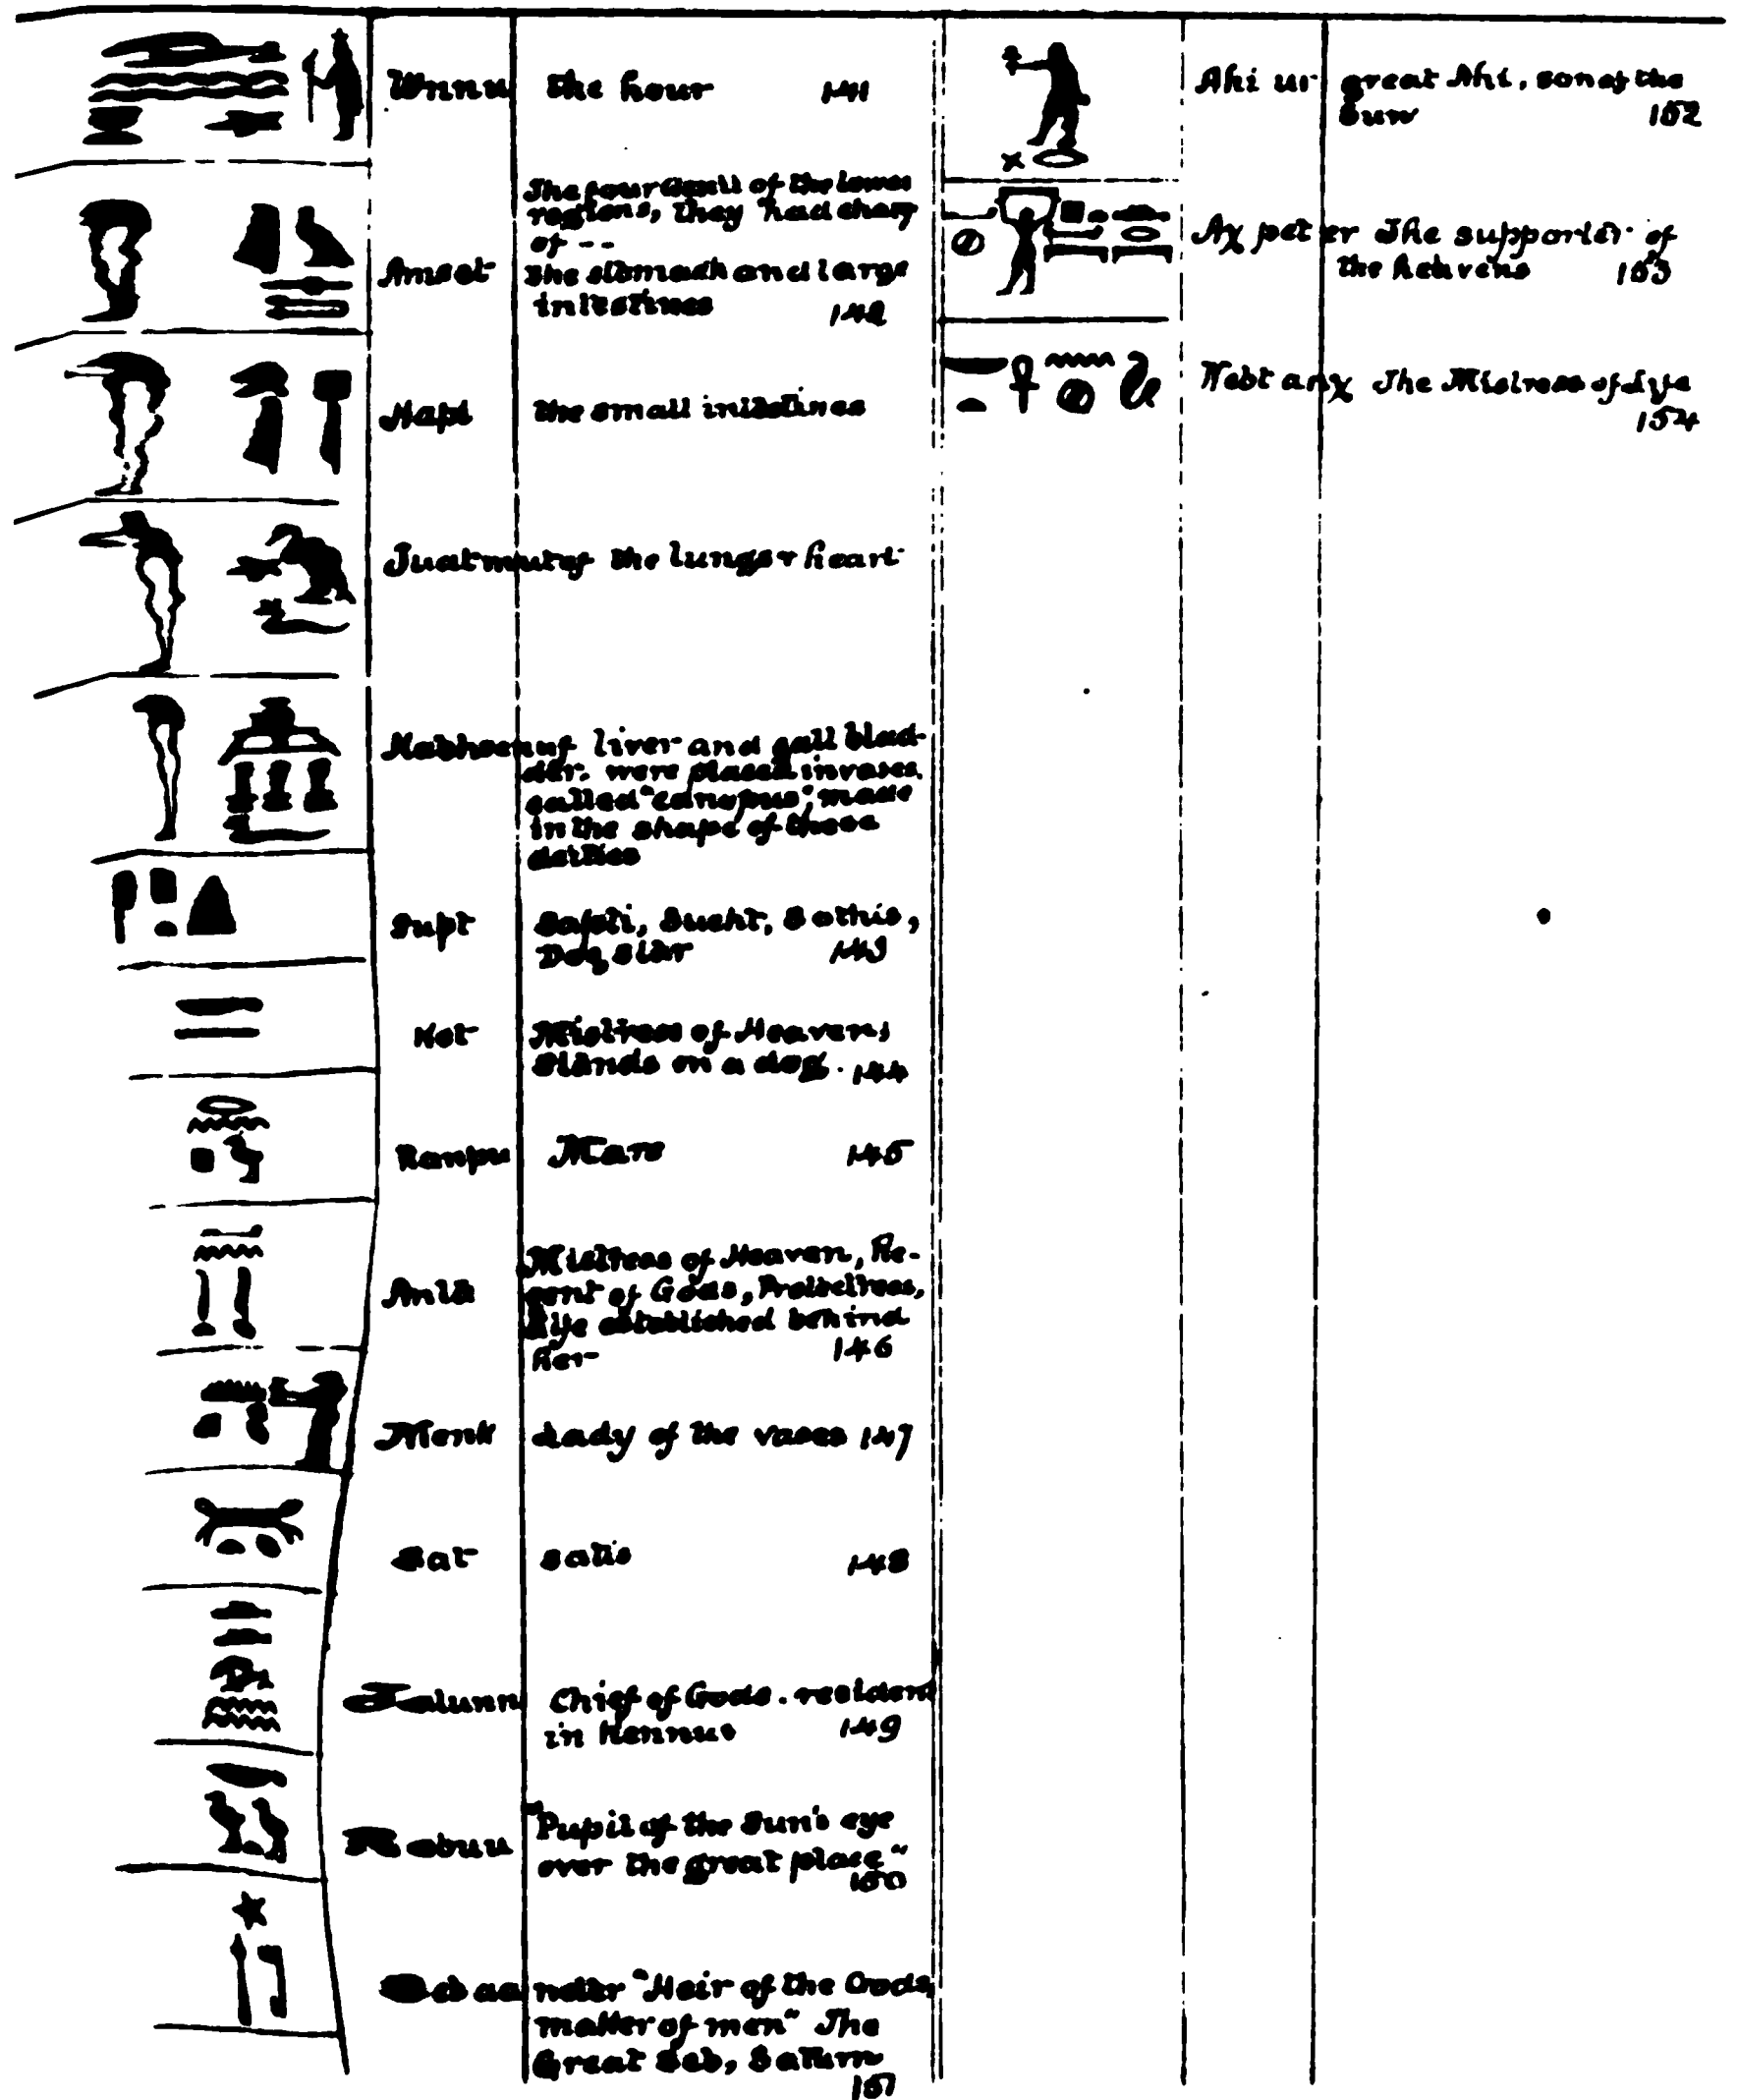 Unnu the hour 141
The four Genii of the lower
regions, they had charg
of --
Amset the stomach and large
intestines 142
Hapi the small intestines
Tuatmutef the lungs & heart
Kabhsenuf liver and gall blad-
der. were placed in vases
called "canopus", made
in the shape of these
deities
Supt Sapti, Sucht, Sothis,
Dog Star 143
Ket Mistress of Heaven,
Stands on a dog. 144
Ranpu Mars 145
Anta Mistress of Heaven, Re-
gent of Gods, Protectress,
Life established behind
her 146
Menk Lady of the vases 147
Sat Satis 148
Chief of Gods. resident
in Hennus 149
Nebuu "Pupil of the Sun's eye
over the great place"
150
Seb aa neter "Heir of the Gods,
matter of men" The
Great Seb, Saturn
151
Ahi ur great Ahi, son of the
Sun 152
Aχ pet er The supporter of
the heavens 153
Nebt anχ The Mistress of Life
154